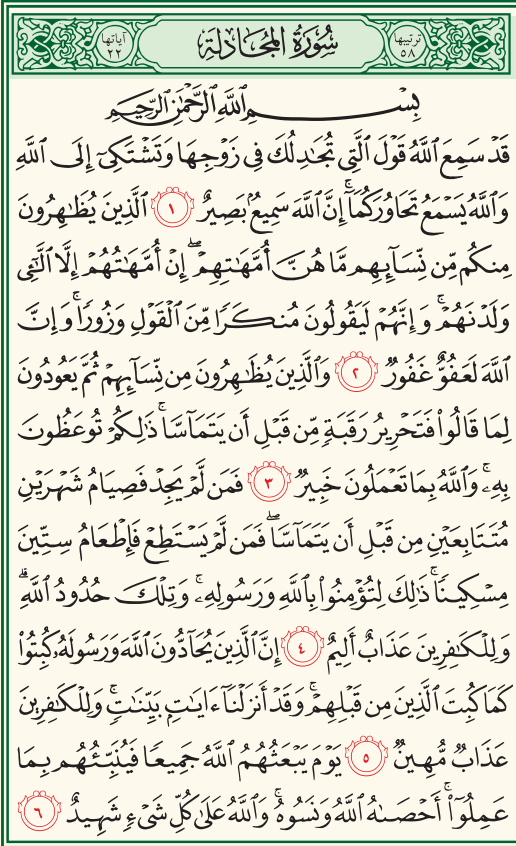 ترتيبها ٥٨ سُورَةُ المُجَادلةِ آياتها ٢٢
بِسْمِ اللَّهِ الرَّحْمَٰنِ الرَّحِيمِ
قَدْ سَمِعَ ٱللَّهُ قَوْلَ ٱلَّتِي تُجَٰدِلُكَ فِي زَوْجِهَا وَتَشْتَكِيٓ إِلَى ٱللَّهِ
وَٱللَّهُ يَسْمَعُ تَحَاوُرَكُمَآۚ إِنَّ ٱللَّهَ سَمِيعُۢ بَصِيرٌ ١ ٱلَّذِينَ يُظَٰهِرُونَ
مِنكُم مِّن نِّسَآئِهِم مَّا هُنَّ أُمَّهَٰتِهِمْۖ إِنْ أُمَّهَٰتُهُمْ إِلَّا ٱلَّٰٓـِٔي
وَلَدْنَهُمْۚ وَإِنَّهُمْ لَيَقُولُونَ مُنكَرًا مِّنَ ٱلْقَوْلِ وَزُورًاۚ وَإِنَّ
ٱللَّهَ لَعَفُوٌّ غَفُورٌ ٢ وَٱلَّذِينَ يُظَٰهِرُونَ مِن نِّسَآئِهِمْ ثُمَّ يَعُودُونَ
لِمَا قَالُوا۟ فَتَحْرِيرُ رَقَبَةٍ مِّن قَبْلِ أَن يَتَمَآسَّاۚ ذَٰلِكُمْ تُوعَظُونَ
بِهِۦۚ وَٱللَّهُ بِمَا تَعْمَلُونَ خَبِيرٌ ٣ فَمَن لَّمْ يَجِدْ فَصِيَامُ شَهْرَيْنِ
مُتَتَابِعَيْنِ مِن قَبْلِ أَن يَتَمَآسَّاۖ فَمَن لَّمْ يَسْتَطِعْ فَإِطْعَامُ سِتِّينَ
مِسْكِينًاۚ ذَٰلِكَ لِتُؤْمِنُوا۟ بِٱللَّهِ وَرَسُولِهِۦۚ وَتِلْكَ حُدُودُ ٱللَّهِۗ
وَلِلْكَٰفِرِينَ عَذَابٌ أَلِيمٌ ٤ إِنَّ ٱلَّذِينَ يُحَآدُّونَ ٱللَّهَ وَرَسُولَهُۥ كُبِتُوا۟
كَمَا كُبِتَ ٱلَّذِينَ مِن قَبْلِهِمْۚ وَقَدْ أَنزَلْنَآ ءَايَٰتِۭ بَيِّنَٰتٍۚ وَلِلْكَٰفِرِينَ
عَذَابٌ مُّهِينٌ ٥ يَوْمَ يَبْعَثُهُمُ ٱللَّهُ جَمِيعًا فَيُنَبِّئُهُم بِمَا
عَمِلُوٓا۟ۚ أَحْصَىٰهُ ٱللَّهُ وَنَسُوهُۚ وَٱللَّهُ عَلَىٰ كُلِّ شَيْءٍ شَهِيدٌ ٦